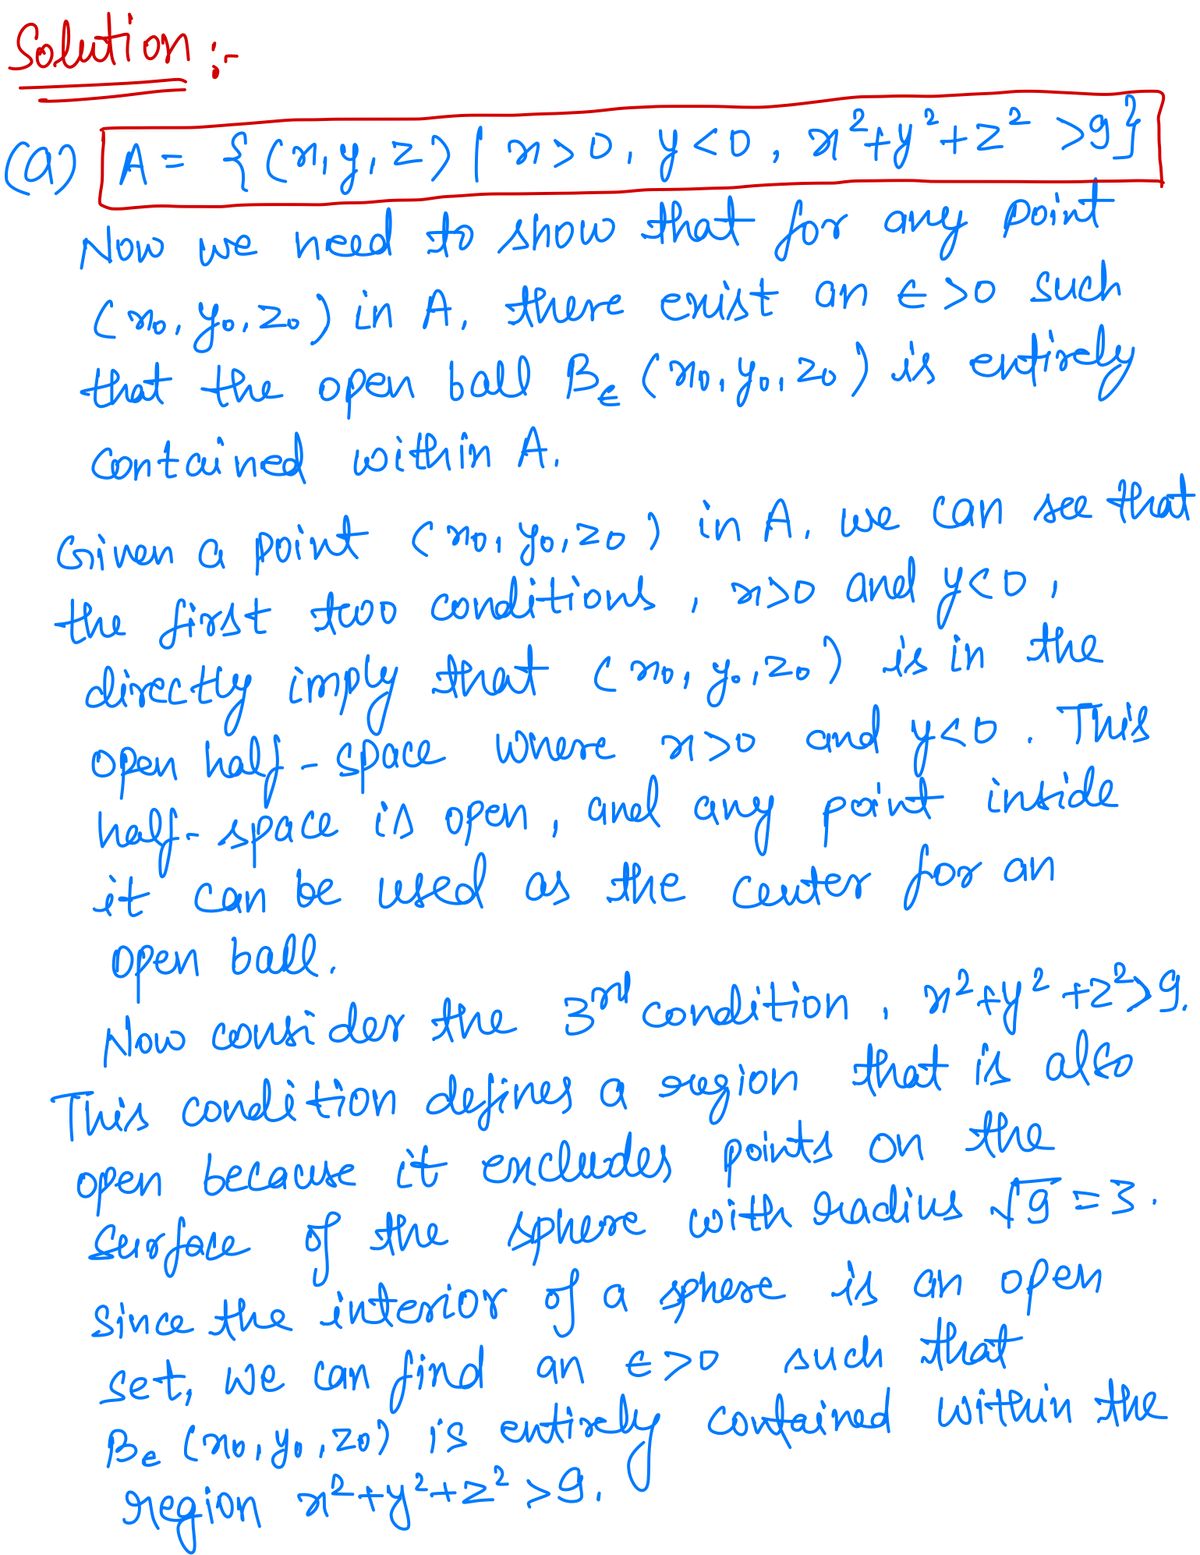 Solution :-
(a) A = { (x, y, z) | x > 0, y < 0, x²+y²+z² > 9 }
Now we need to show that for any point
(x₀, y₀, z₀) in A, there exist an ϵ > 0 such
that the open ball Bϵ (x₀, y₀, z₀) is entirely
contained within A.
Given a point (x₀, y₀, z₀) in A, we can see that
the first two conditions, x>0 and y<0,
directly imply that (x₀, y₀, z₀) is in the
open half-space where x>0 and y<0. This
half-space is open, and any point inside
it can be used as the center for an
open ball.
Now consider the 3rd condition, x²+y²+z²>9.
This condition defines a region that is also
open because it excludes points on the
surface of the sphere with radius √9 = 3.
Since the interior of a sphere is an open
set, we can find an ϵ>0 such that
Bϵ (x₀, y₀, z₀) is entirely contained within the
region x²+y²+z² > 9.